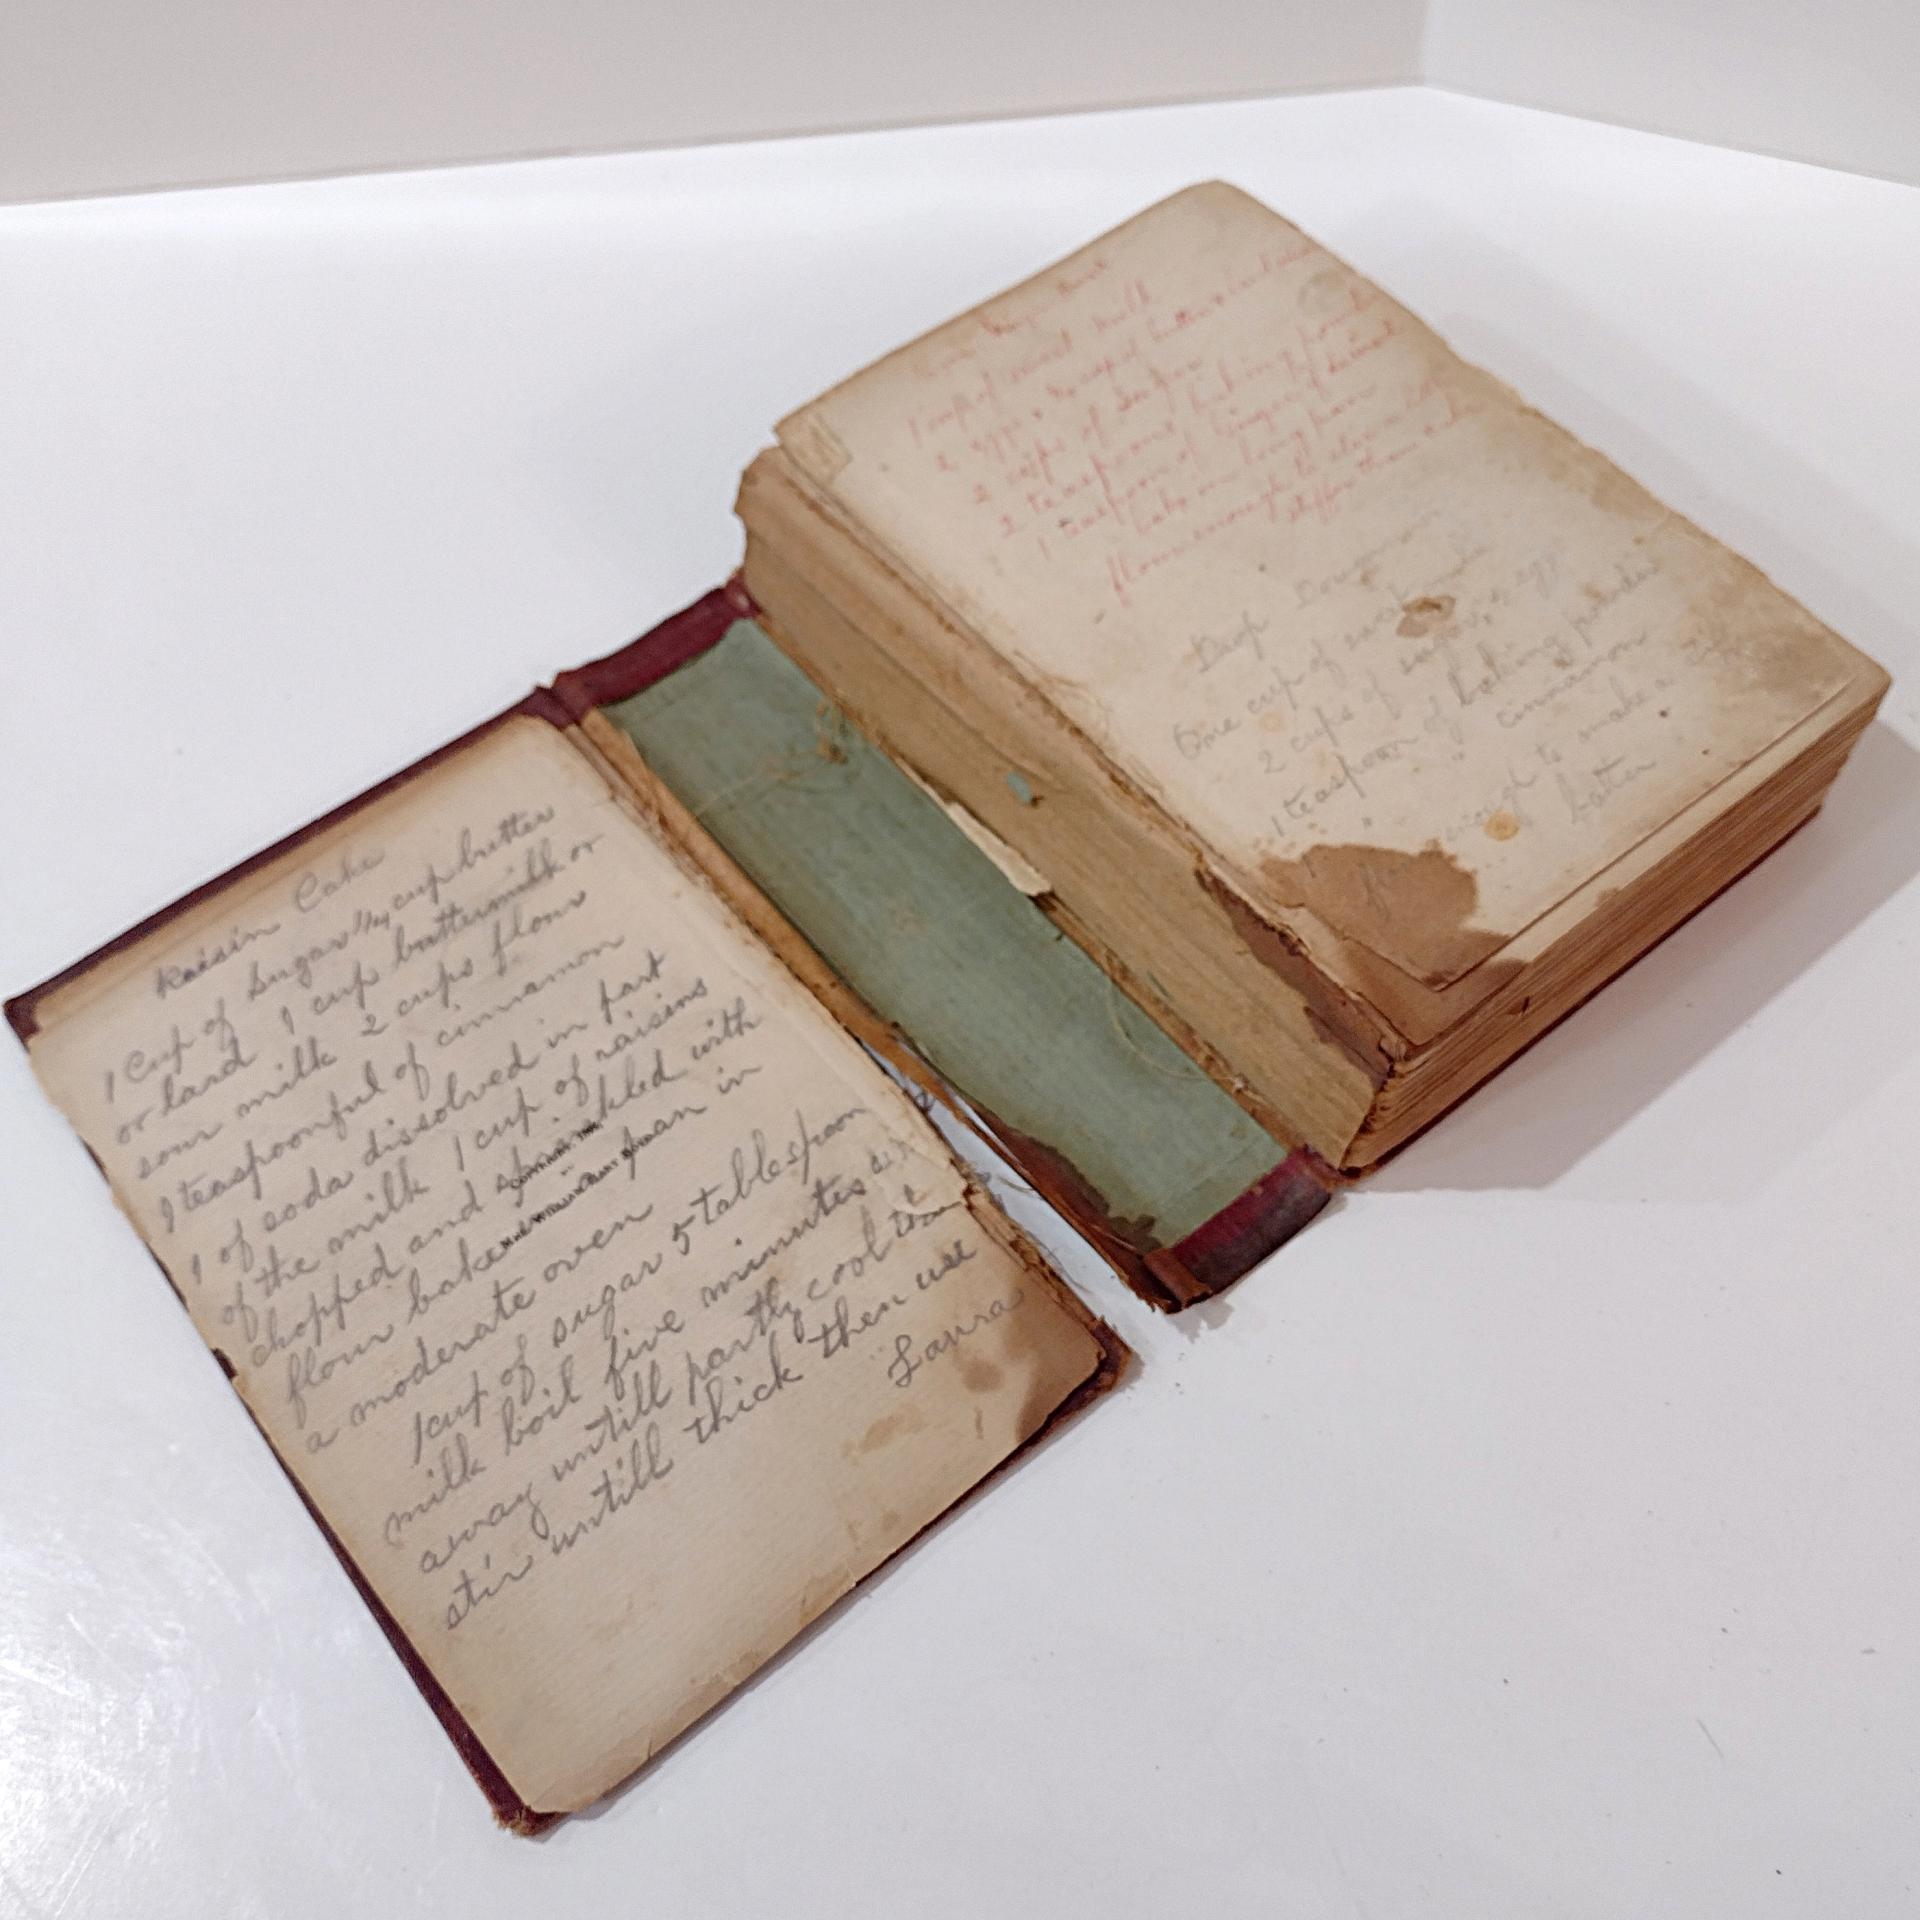 Raisin Cake
1 Cup of Sugar 1/4 cup butter
or lard 1 cup buttermilk or
sour milk 2 cups flour
1 teaspoonful of cinnamon
1 of soda dissolved in part
of the milk 1 cup of raisins
chopped and sprinkled with
flour bake pan in
a moderate oven
1 cup of sugar 5 tablespoon
milk boil five minutes set
away untill partly cool then
stir untill thick then use
Laura
1 cup of sweet milk
2 eggs cup of butter
2 cups of sugar
2 teaspoons baking powder
1 teaspoon of ginger
bake in long pan
flour enough to
stiffer than
Drop
One cup of
2 cups of sugar, 2 egg
1 teaspoon of baking powder
" " cinnamon
flour enough to make a
batter